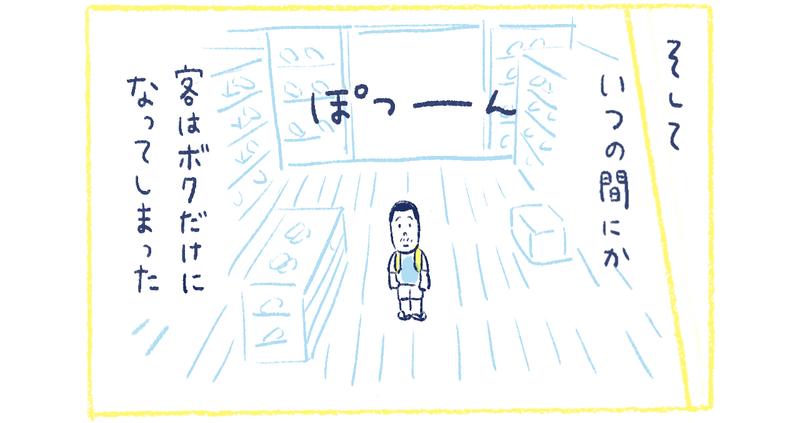 そして
いつの間にか
ぽつーーん
客はボクだけに
なってしまった